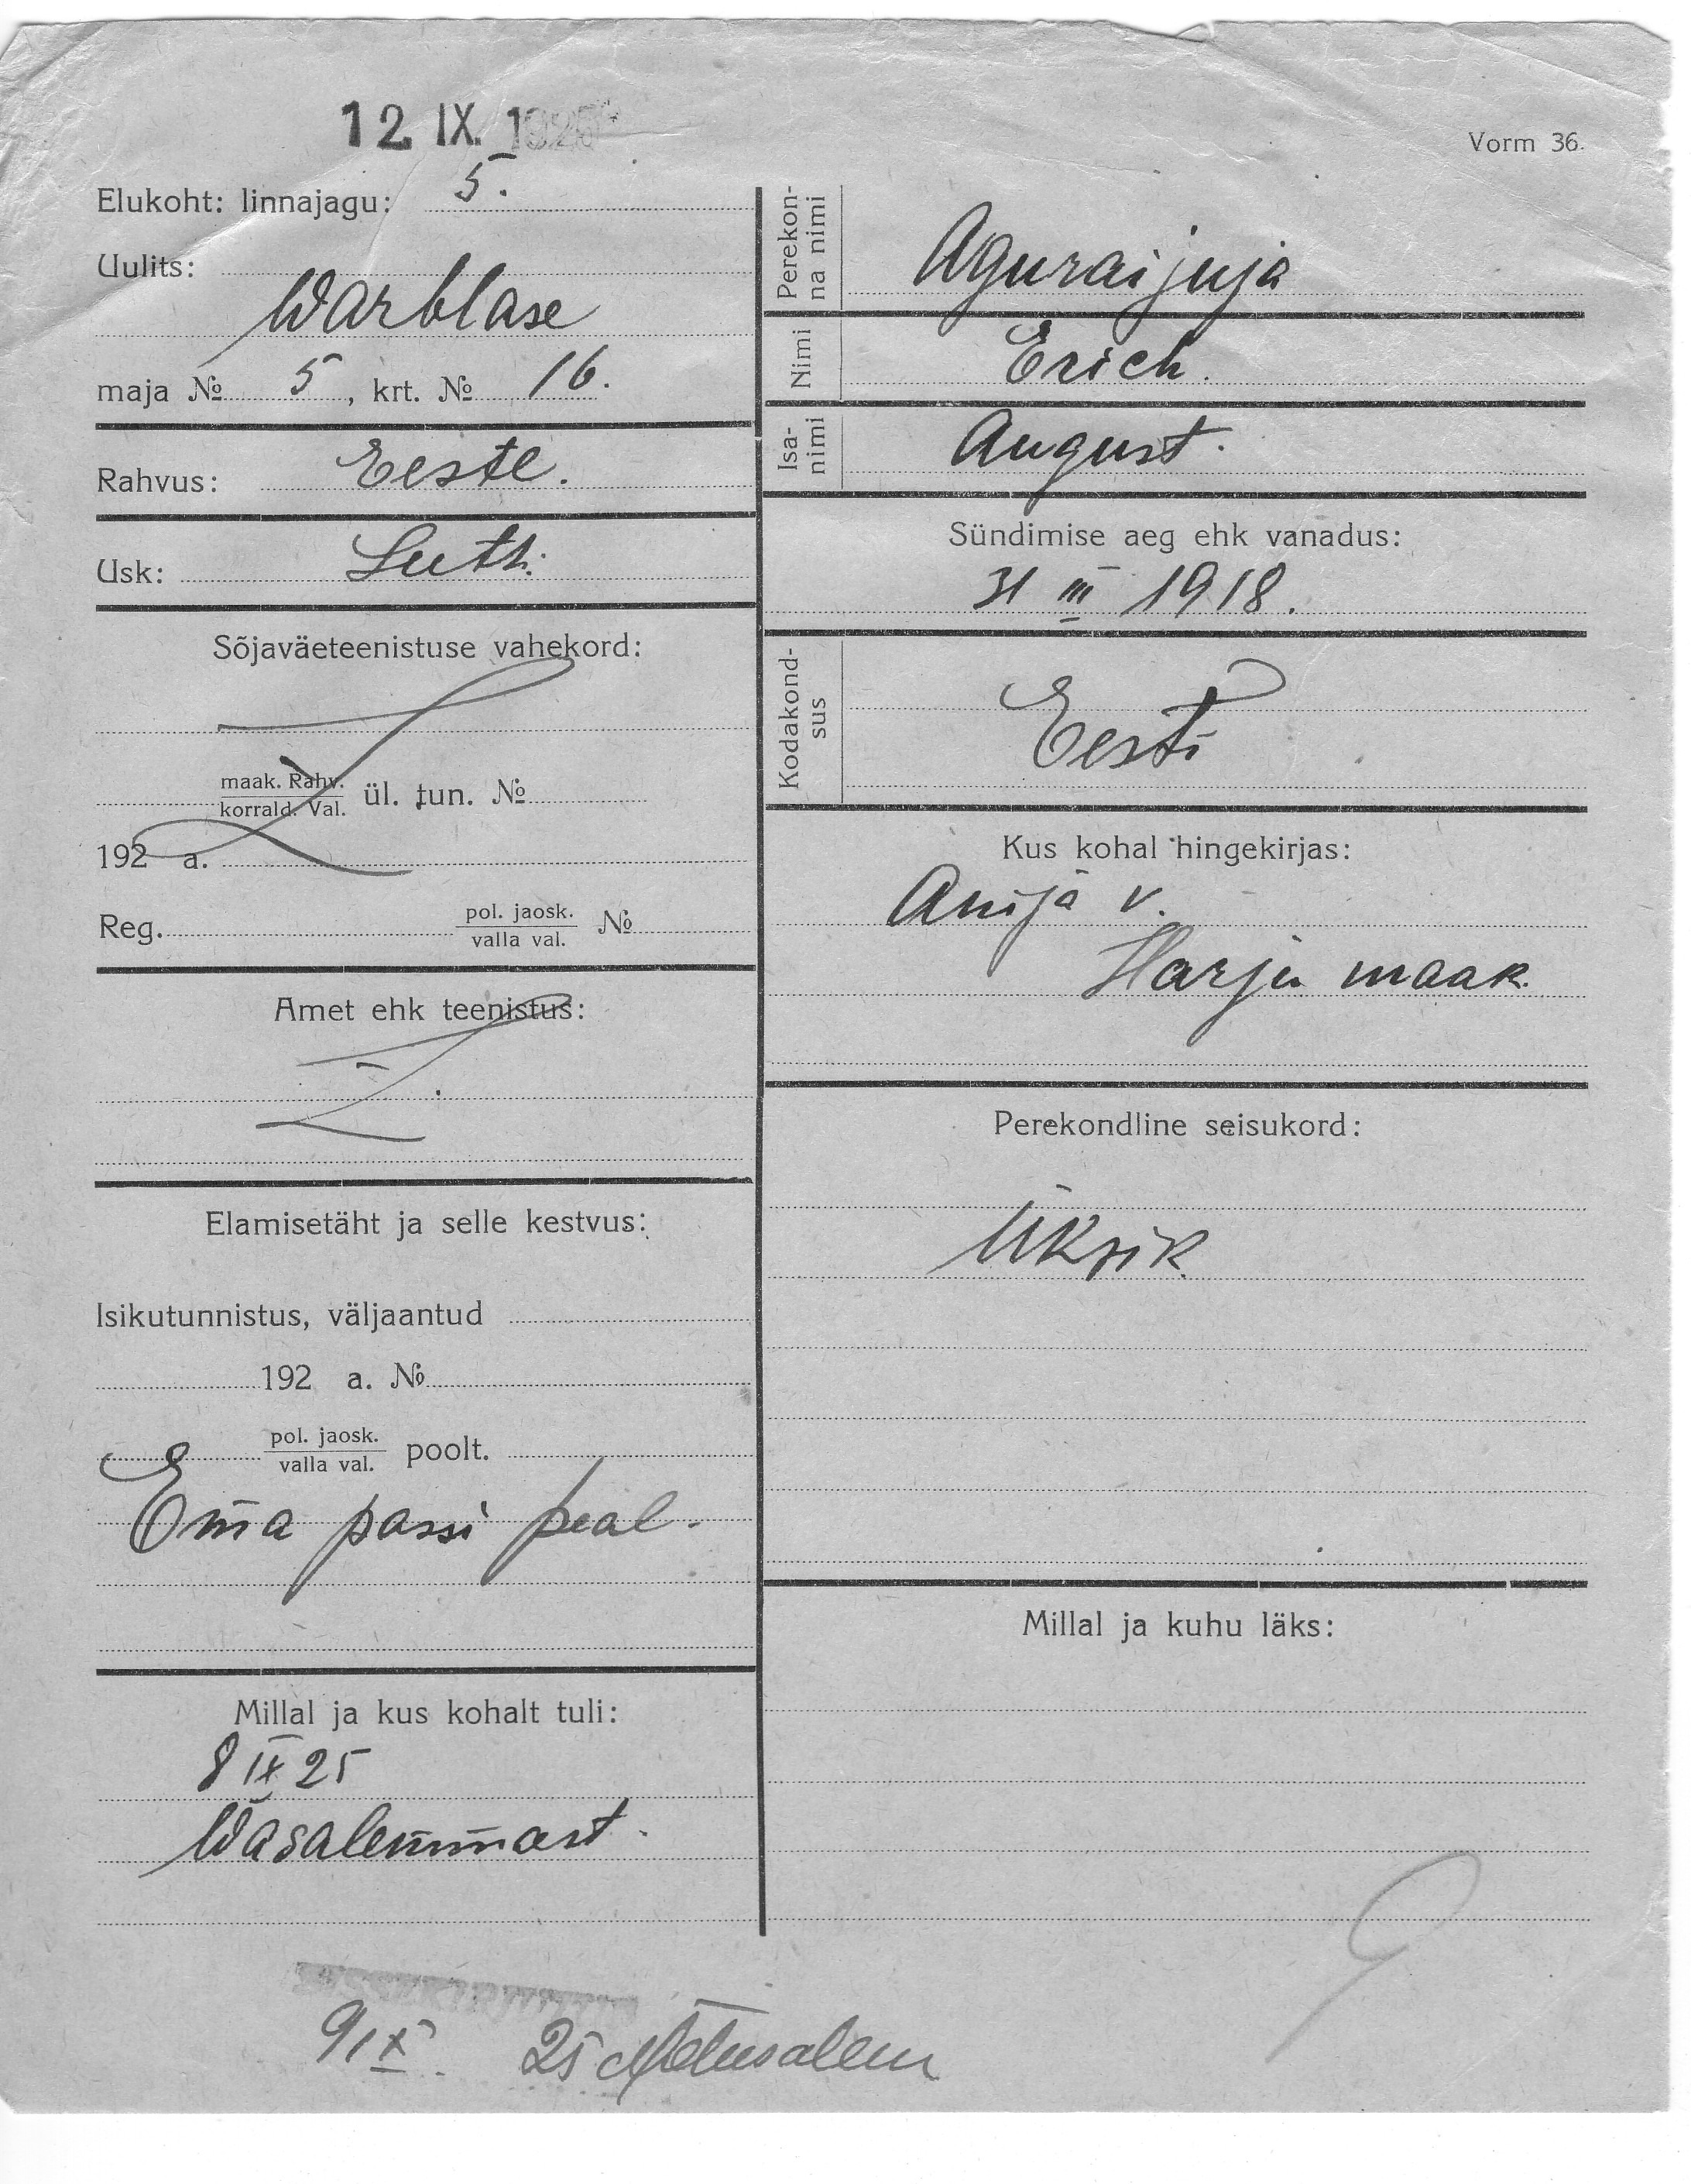 12 IX. 1925
Vorm 36.
Elukoht: linnajagu: 5.
Uulits:
Warblase
maja № 5, krt. № 16.
Rahvus: Eeste.
Usk: Luth.
Sõjaväeteenistuse vahekord:
maak. Rahv.
korrald. Val. ül. tun. №
192 a.
Reg. pol. jaosk.
valla val. №
Amet ehk teenistus:
Elamisetäht ja selle kestvus:
Isikutunnistus, väljaantud
192 a. №
pol. jaosk.
valla val. poolt.
Ema passi peal.
Millal ja kus kohalt tuli:
8 IX 25
Wasalemmast.
Perekon-
na nimi Aguraijuja
Nimi Erich.
Isa-
nimi August.
Sündimise aeg ehk vanadus:
31 III 1918.
Kodakond-
sus Eesti
Kus kohal hingekirjas:
Anija v.
Harju maak.
Perekondline seisukord:
Üksik.
Millal ja kuhu läks:
SISSEKIRJUTATUD
9 IX. 25